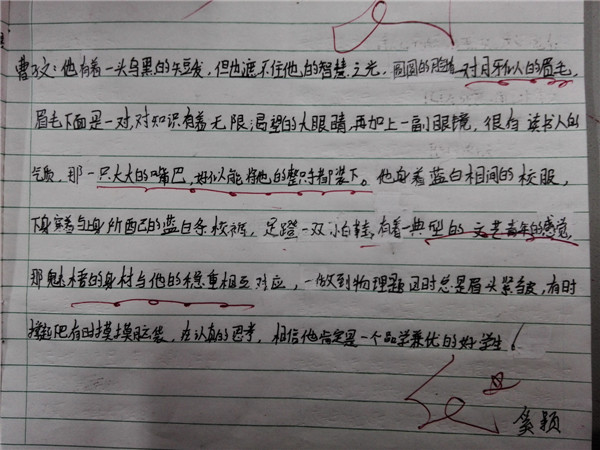 曹文：他有着一头乌黑的短发，但也遮不住他的智慧之光，圆圆的脸着一对月牙似人的眉毛，
眉毛下面是一对，对知识有着无限渴望的大眼睛，再加上一副小眼镜，很有读书人的
气质，那一只大大的嘴巴，好似能将他的整只手都装下。他身着蓝白相间的校服，
下身穿着与上身所匹配的蓝白条校裤，足蹬一双小白鞋，有着一典型的文艺青年的感觉，
那魁梧的身材与他的稳重相互对应，一做到物理题目时总是眉头紧皱，有时
下巴有时摸摸脑袋，在认真的思考，相信他肯定是一个品学兼优的好学生！
奚颖